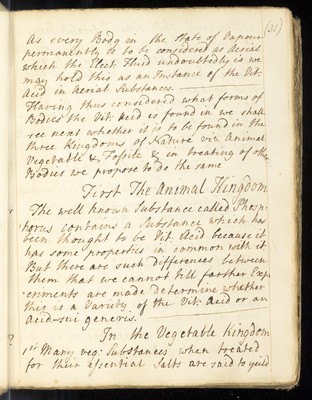 (21)
As every Body in the State of Vapour
permanently is to be considered as Aerial
which the Elect Fluid undoubtedly is we
may hold this as an Instance of the Vit:
Acid in Aerial Substances.
Having thus considered what forms of
Bodies the Vit: Acid is found in we shall
see next whether it is to be found in the
three Kingdoms of Nature viz Animal
Vegetable & Fossile & in treating of other
Bodies we propose to do the same
First The Animal Kingdom
The well known Substance called Phosp-
horus contains a Substance which has
been thought to be Vit: Acid because it
has some properties in common with it
But there are such differences between
them that we cannot till farther Exper-
iments are made determine whether
this is a Variety of the Vit: Acid or an
Acid sui generis.
In the Vegetable Kingdom
1st Many veg: Substances when treated
for their essential Salts are said to yeild